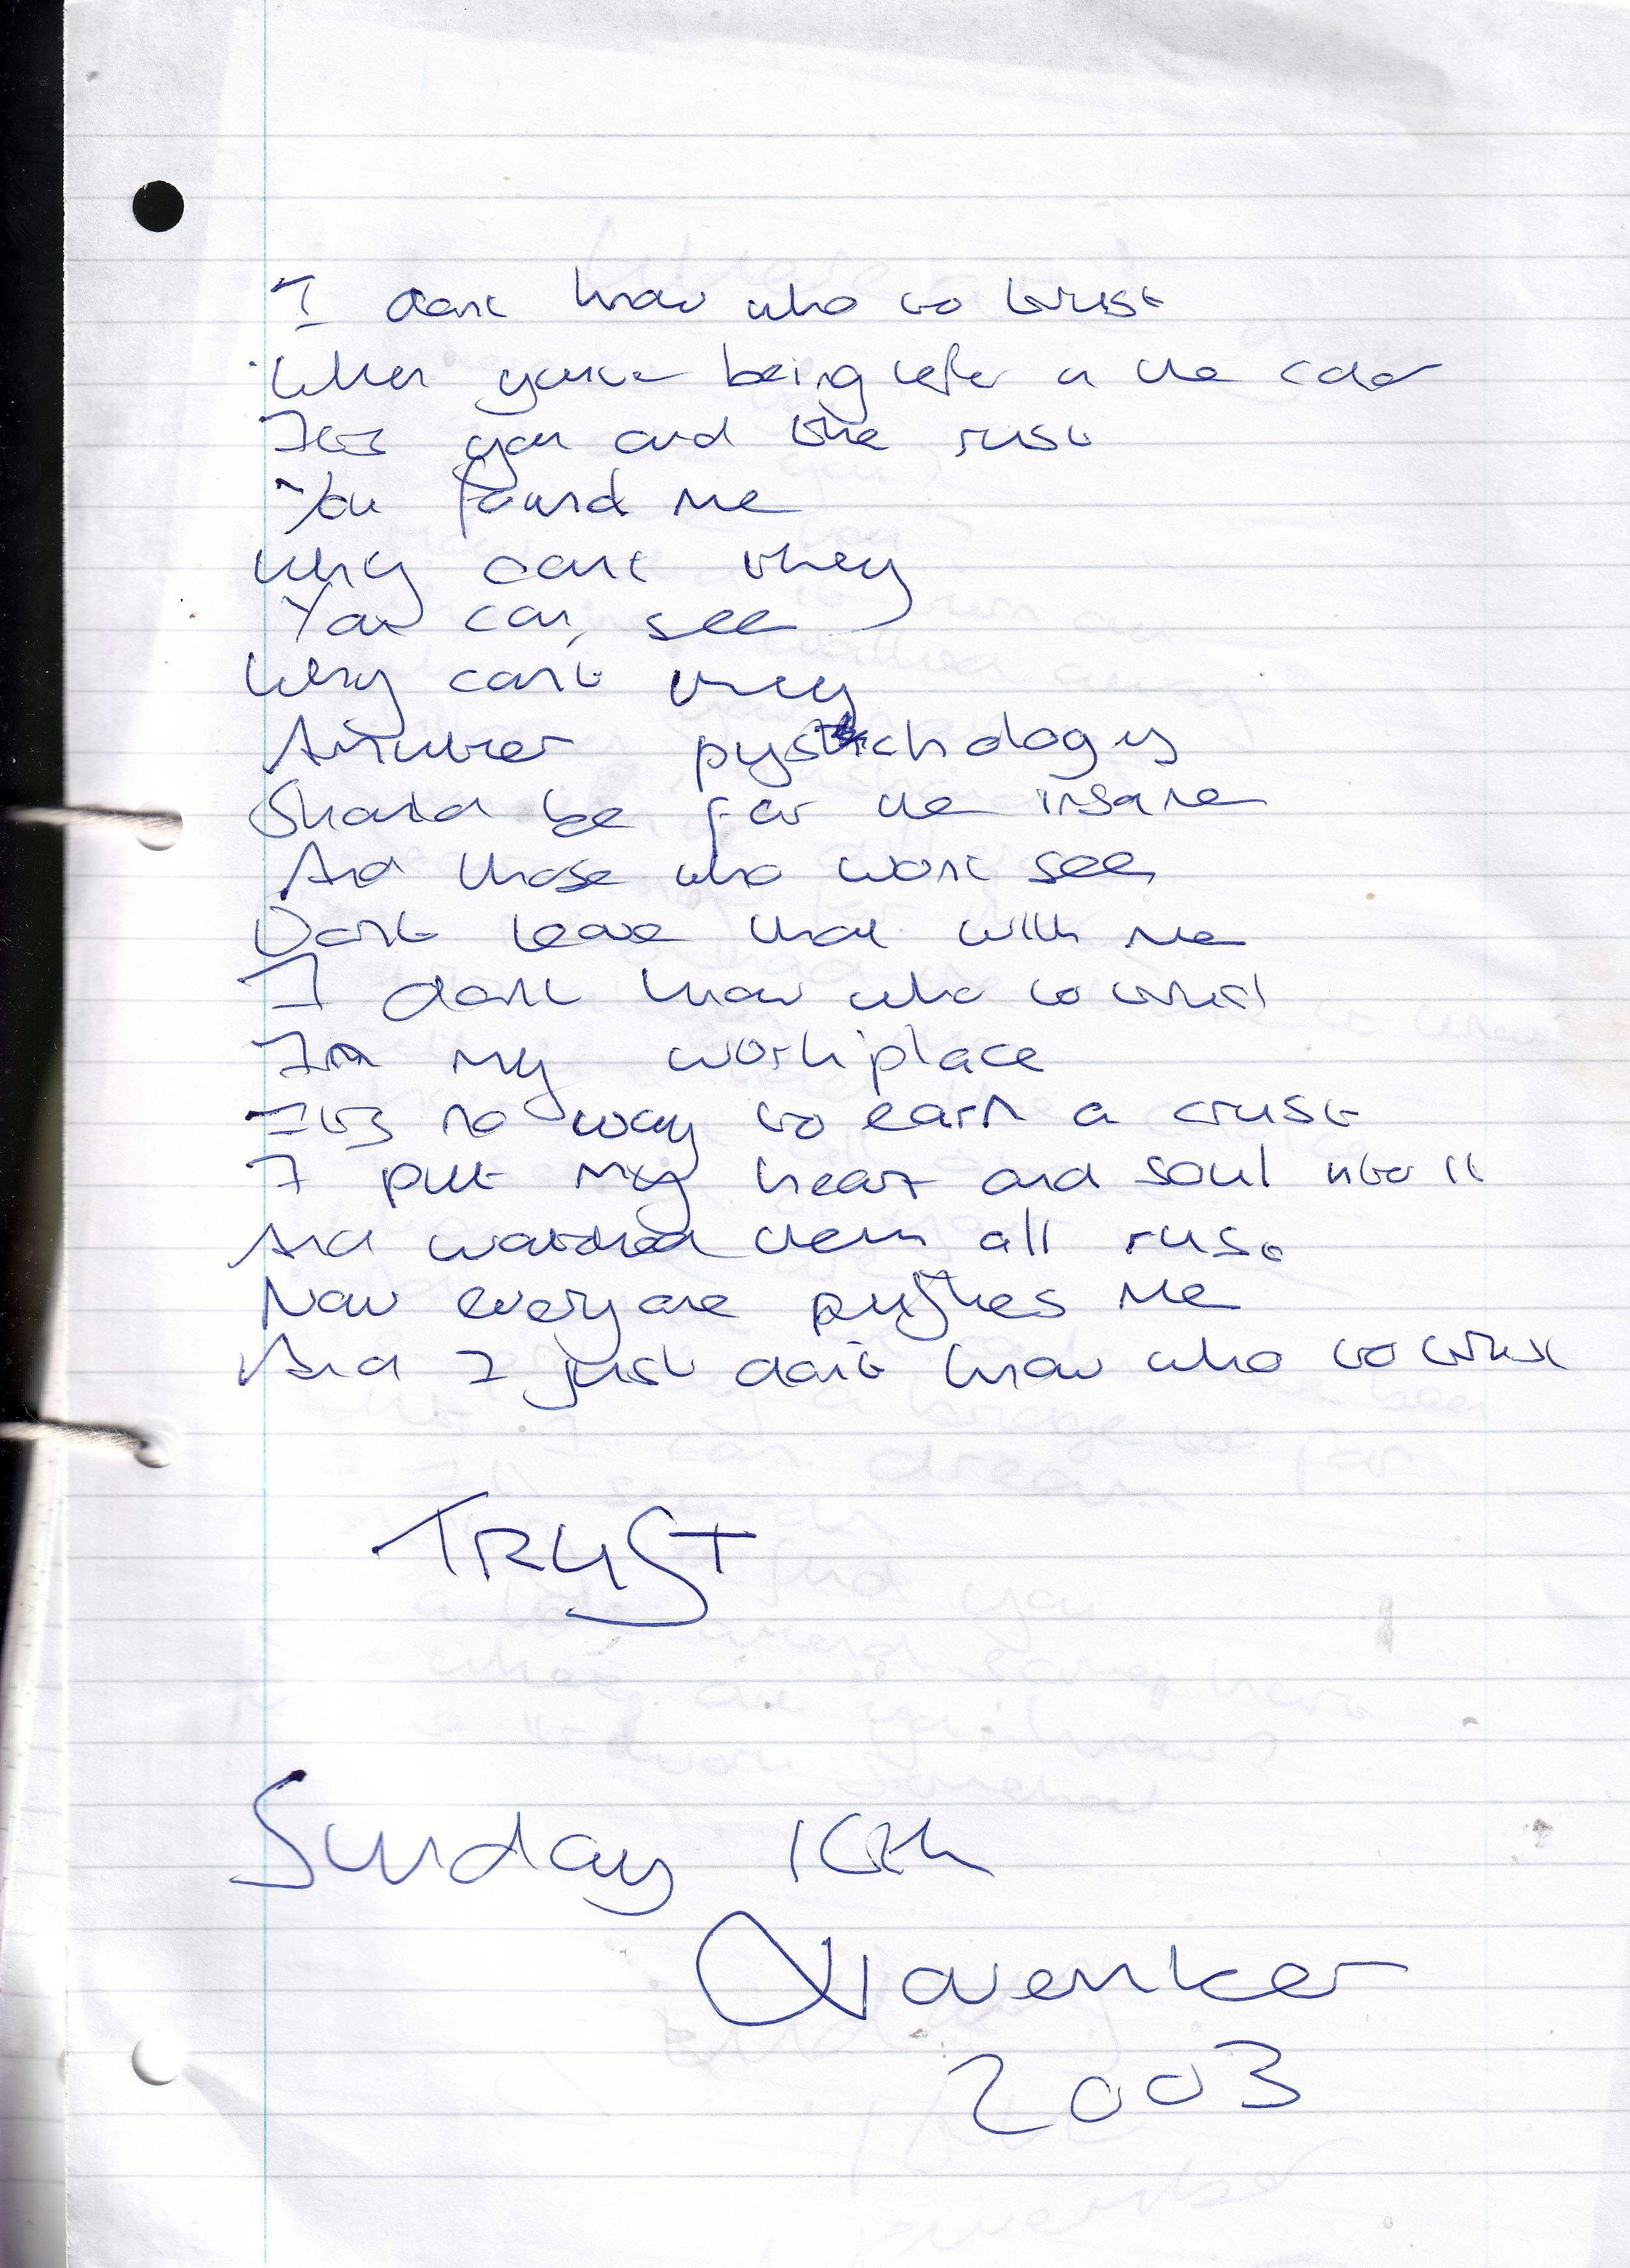 I dont know who to trust
When youre being left in the cold
Its you and the rust
You found me
Why cant they
You can, see
Why cant they
pyschology
Should be for the insane
And those who wont see
Dont leave that with me
I dont know who to trust
In my workplace
Its no way to earn a crust
I put my heart and soul into it
And watched them all rust
Now everyone pushes me
And I just dont know who to trust
TRUST
Sunday 16th
November
2003